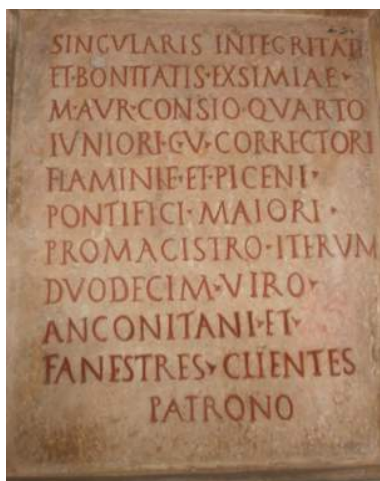 SINGVLARIS INTEGRITATI
ET·BONITATIS·EXSIMIAE·
M·AVR·CONSIO·QVARTO
IVNIORI·C·V·CORRECTORI
FLAMINIE·ET·PICENI·
PONTIFICI·MAIORI·
PROMAGISTRO·ITERVM
DVODECIM·VIRO·
ANCONITANI·ET·
FANESTRES·CLIENTES
PATRONO